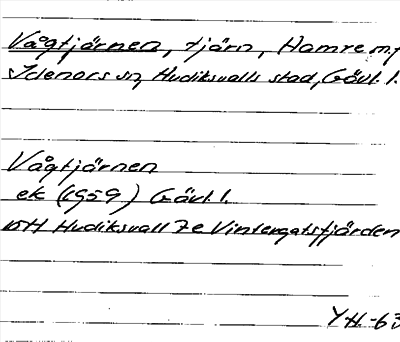 Vågtjärnen, tjärn, Hamre m.fl
Idenors sn, Hudiksvalls stad, Gävl. l.
Vågtjärnen
ek (1959) Gävl. l.
15H Hudiksvall 7e Vintergatsfjärden
YH-63